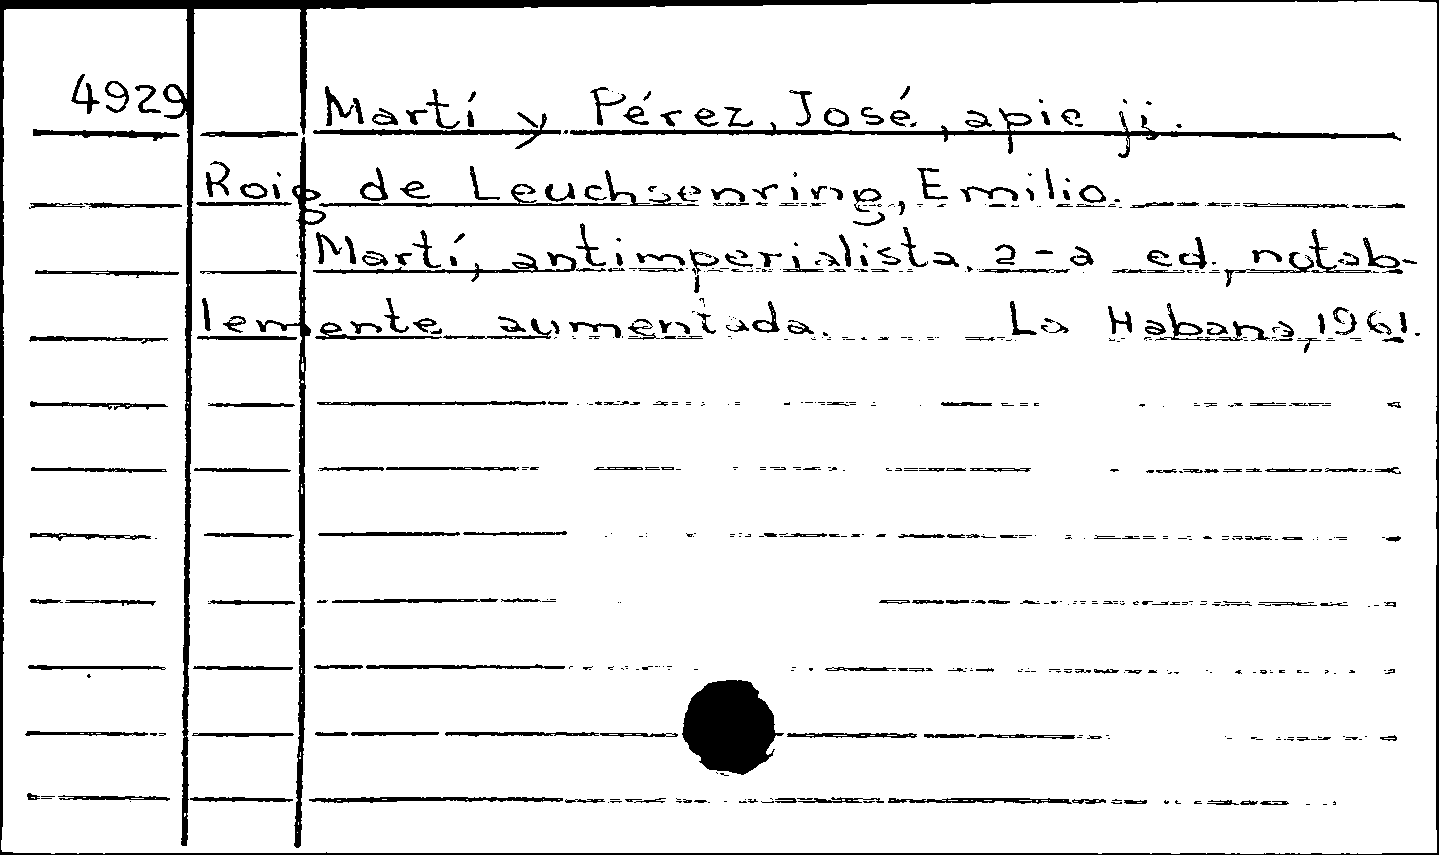 4929 Martí y Pérez, José, apie jį.
Roig de Leuchsenring, Emilio.
Martí, antimperialista. 2-a ed., notab-
lemente aumentada. La Habana, 1961.